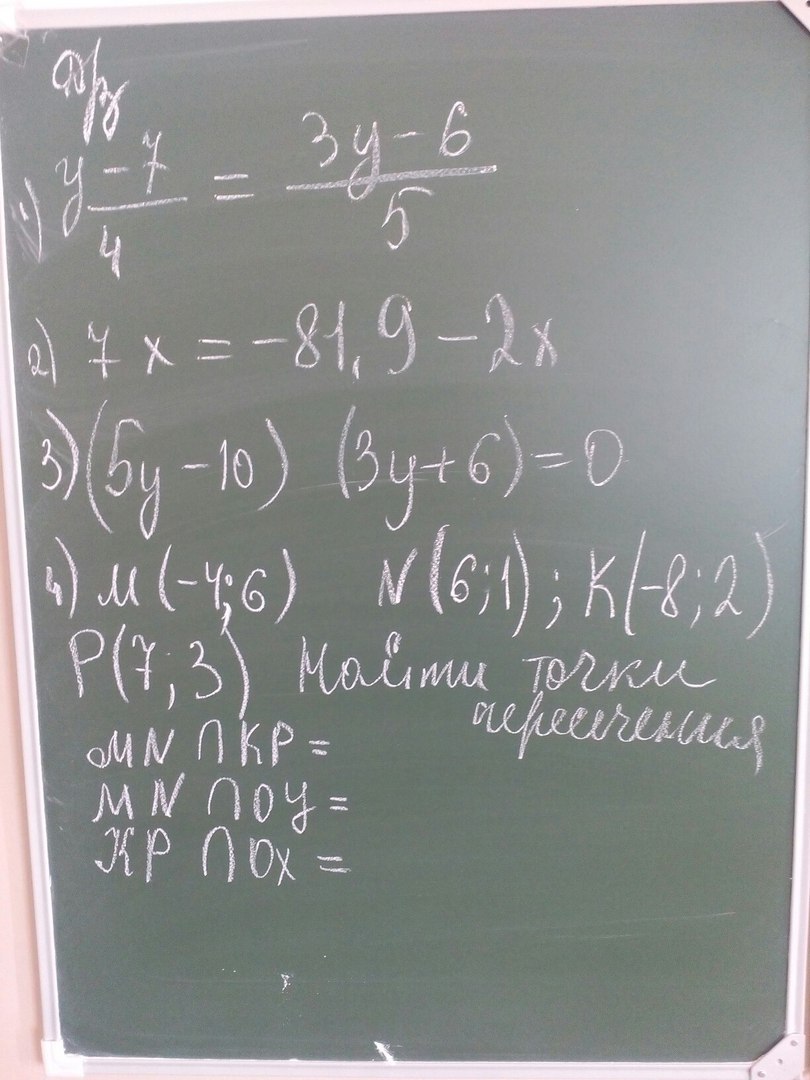 Д/з
1) y-7/4 = 3y-6/5
2) 7x = -81,9 - 2x
3) (5y-10) (3y+6) = 0
4) M(-4;6) N(6;1); K(-8;2)
P(7;3) Найти точки
пересечения
MN ∩ KP =
MN ∩ OY =
KP ∩ OX =